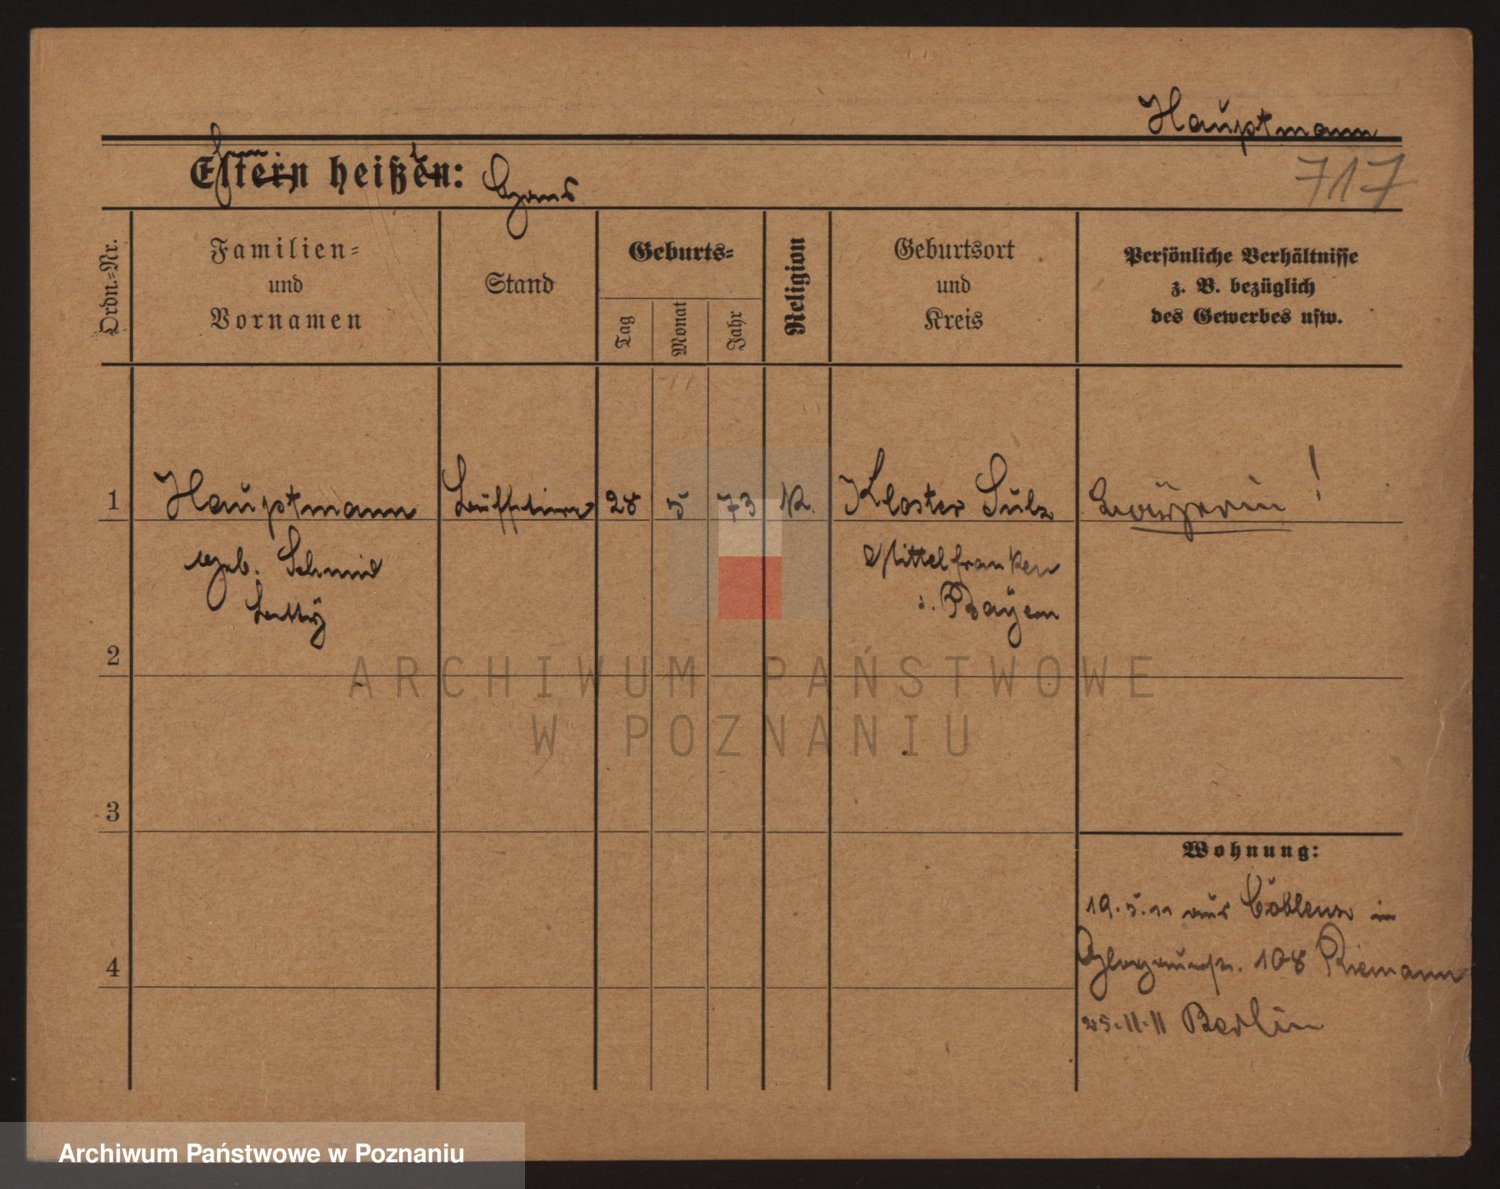 Hauptmann
717
Eltern heißen: Hans
Ordn.-Nr.
Familien-
und
Vornamen
Stand
Geburts-
Tag
Monat
Jahr
Religion
Geburtsort
und
Kreis
Persönliche Verhältnisse
z. B. bezüglich
des Gewerbes usw.
1
Hauptmann 28 5 73 K. Kloster Sulz
geb. Schmid Mittelfranken
Betty i. Bayern
2
3
4
Wohnung:
19.5.11 aus Coblenz in
108 Riemann
25.11.11 Berlin
ARCHIWUM PAŃSTWOWE
W POZNANIU
Archiwum Państwowe w Poznaniu